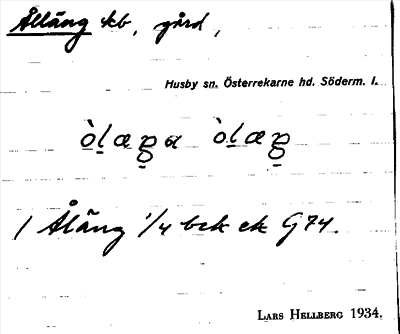 Ålläng kb, gård,
Husby sn. Österrekarne hd. Söderm. l.
1 Åläng 1/4 bck ek G 74.
LARS HELLBERG 1934.